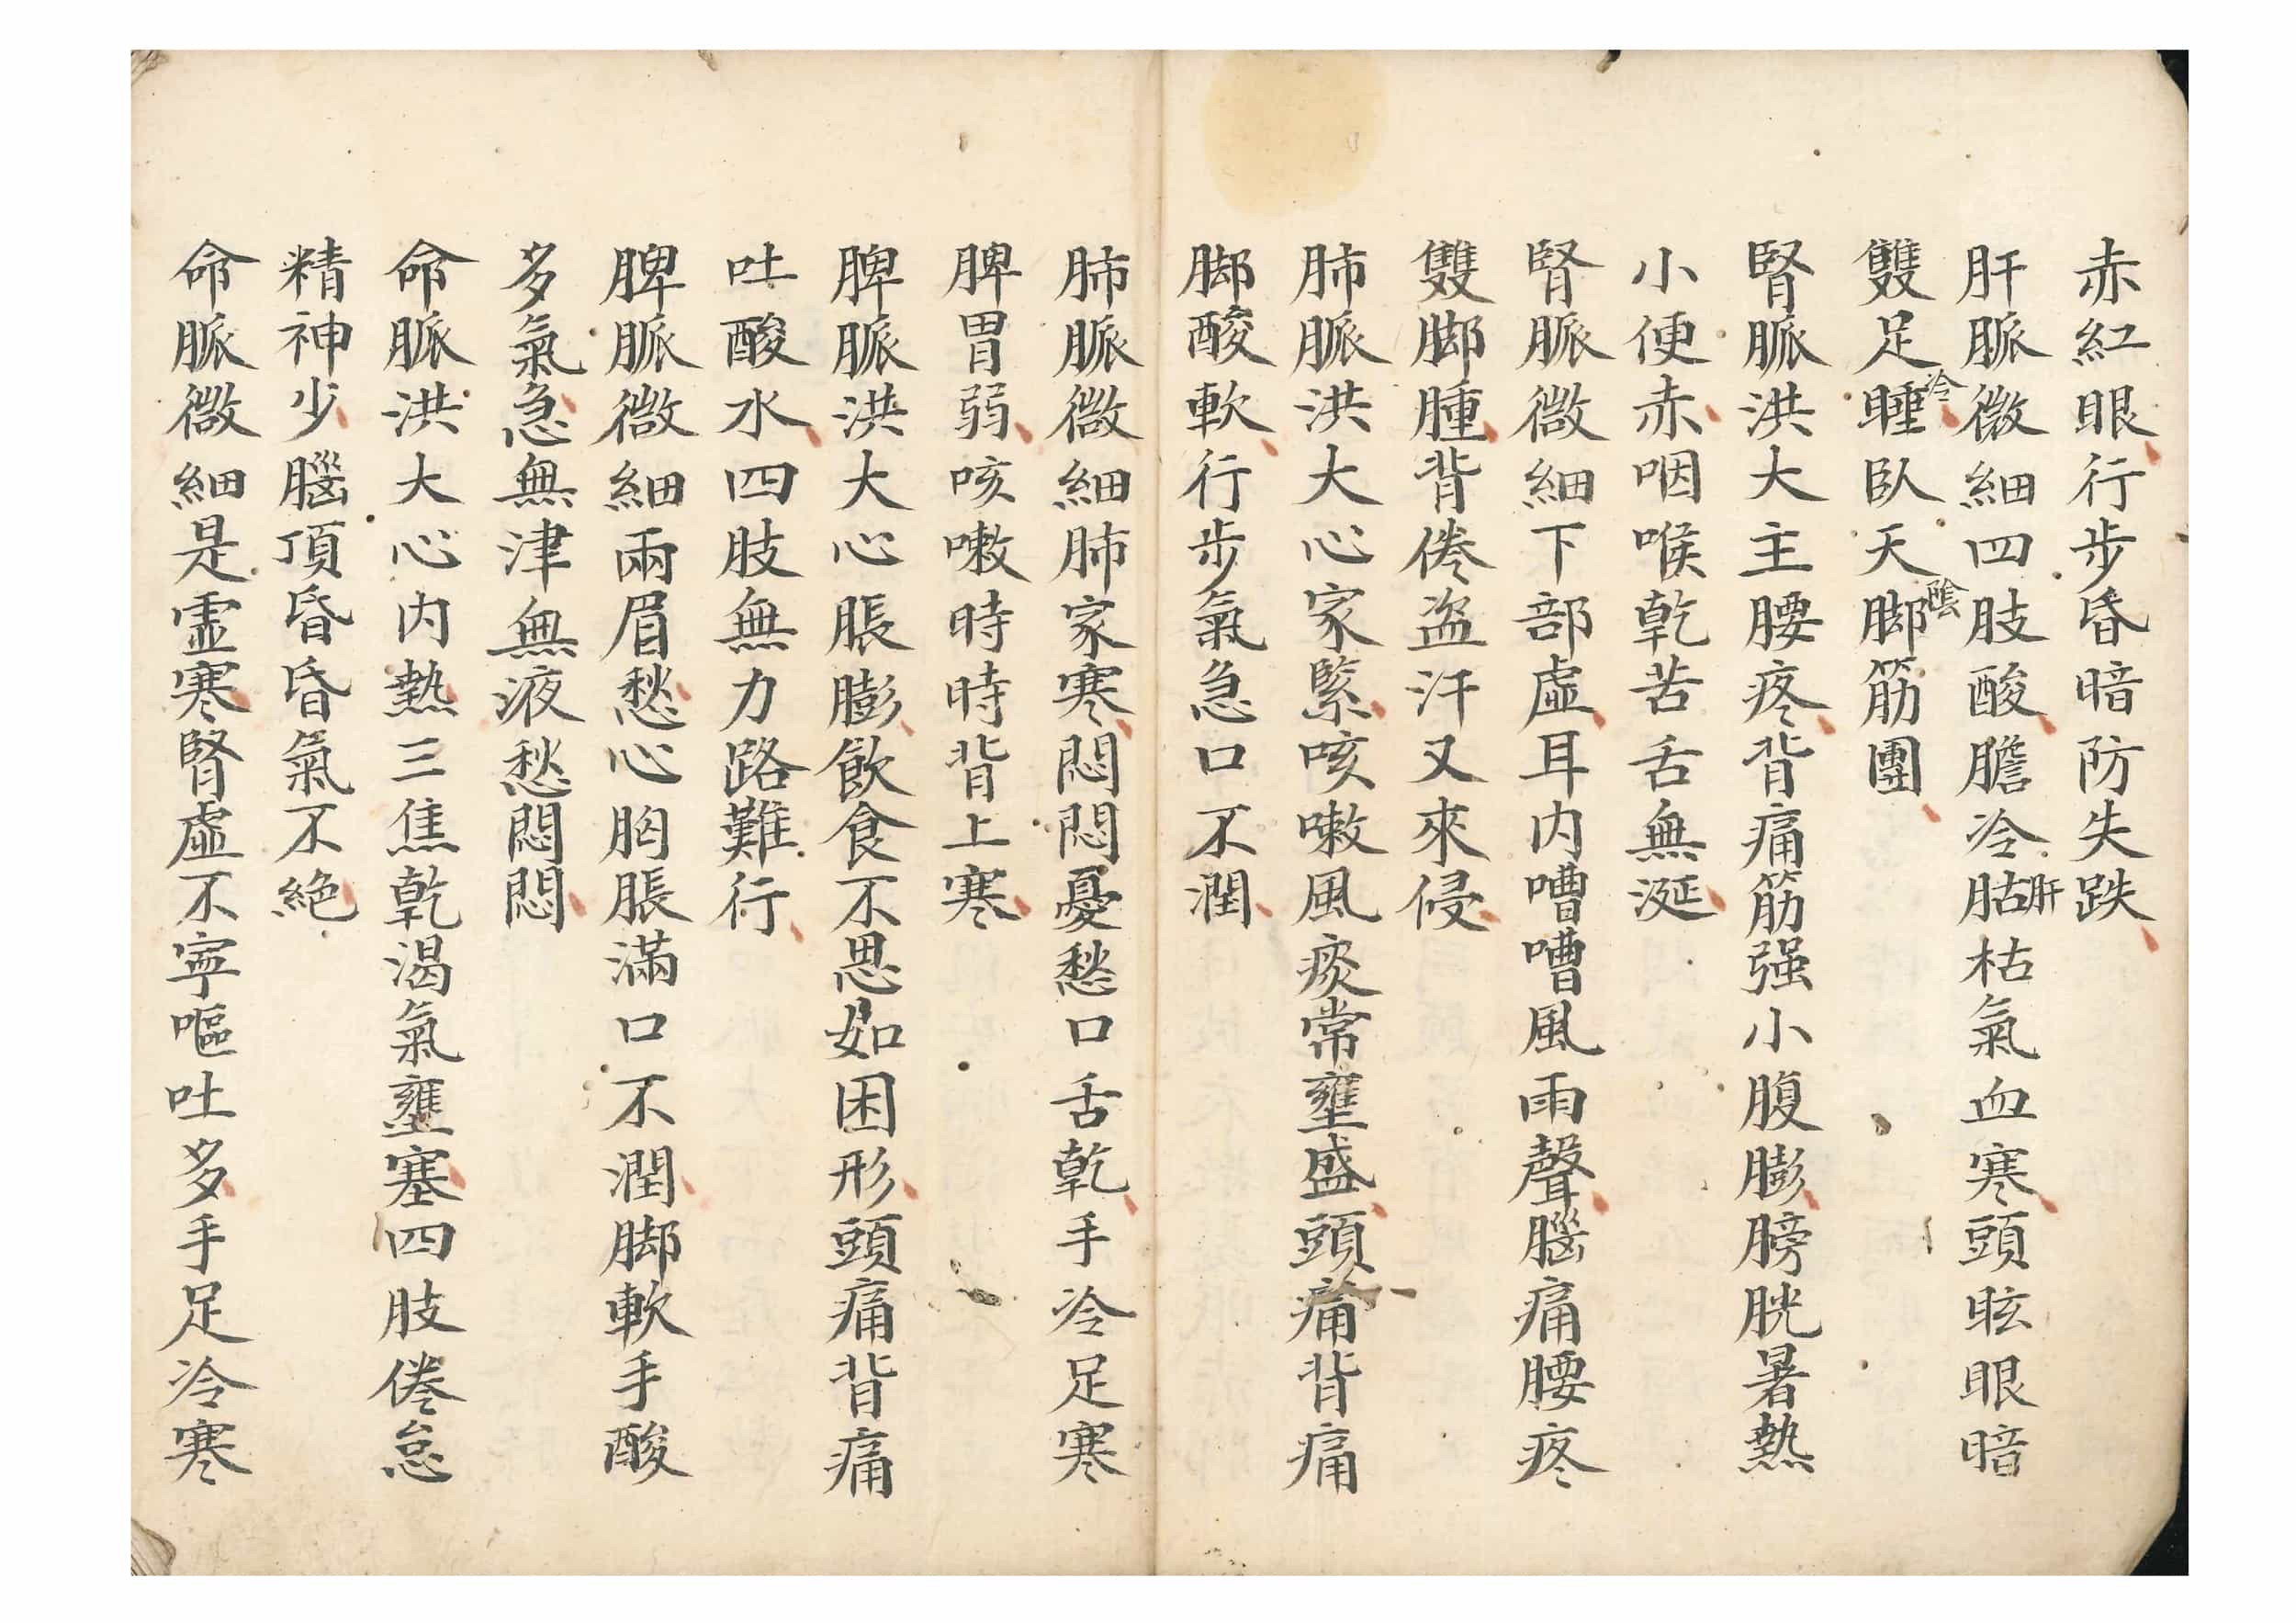 赤紅眼行步昏暗防失跌
肝脈微細四肢酸膽冷肝枯枯氣血寒頭眩眼暗
雙足冷睡臥天陰脚筋團
腎脈洪大主腰疼背痛筋强小腹膨膀胱暑熱
小便赤咽喉乾苦舌無涎
腎脈微細下部虛耳内嘈嘈風雨聲腦痛腰疼
雙脚腫背倦盗汗又來侵
肺脈洪大心家緊咳嗽風痰常壅盛頭痛背痛
脚酸軟行步氣急口不潤
肺脈微細肺家寒悶悶憂愁口舌乾手冷足寒
脾胃弱咳嗽時時背上寒
脾脈洪大心脹膨飲食不思如困形頭痛背痛
吐酸水四肢無力路難行
脾脈微細兩眉愁心胸脹滿口不潤脚軟手酸
多氣急無津無液愁悶悶
命脈洪大心内熱三焦乾渴氣壅塞四肢倦怠
精神少腦頂昏昏氣不絶
命脈微細是虛寒腎虛不寧嘔吐多手足冷寒